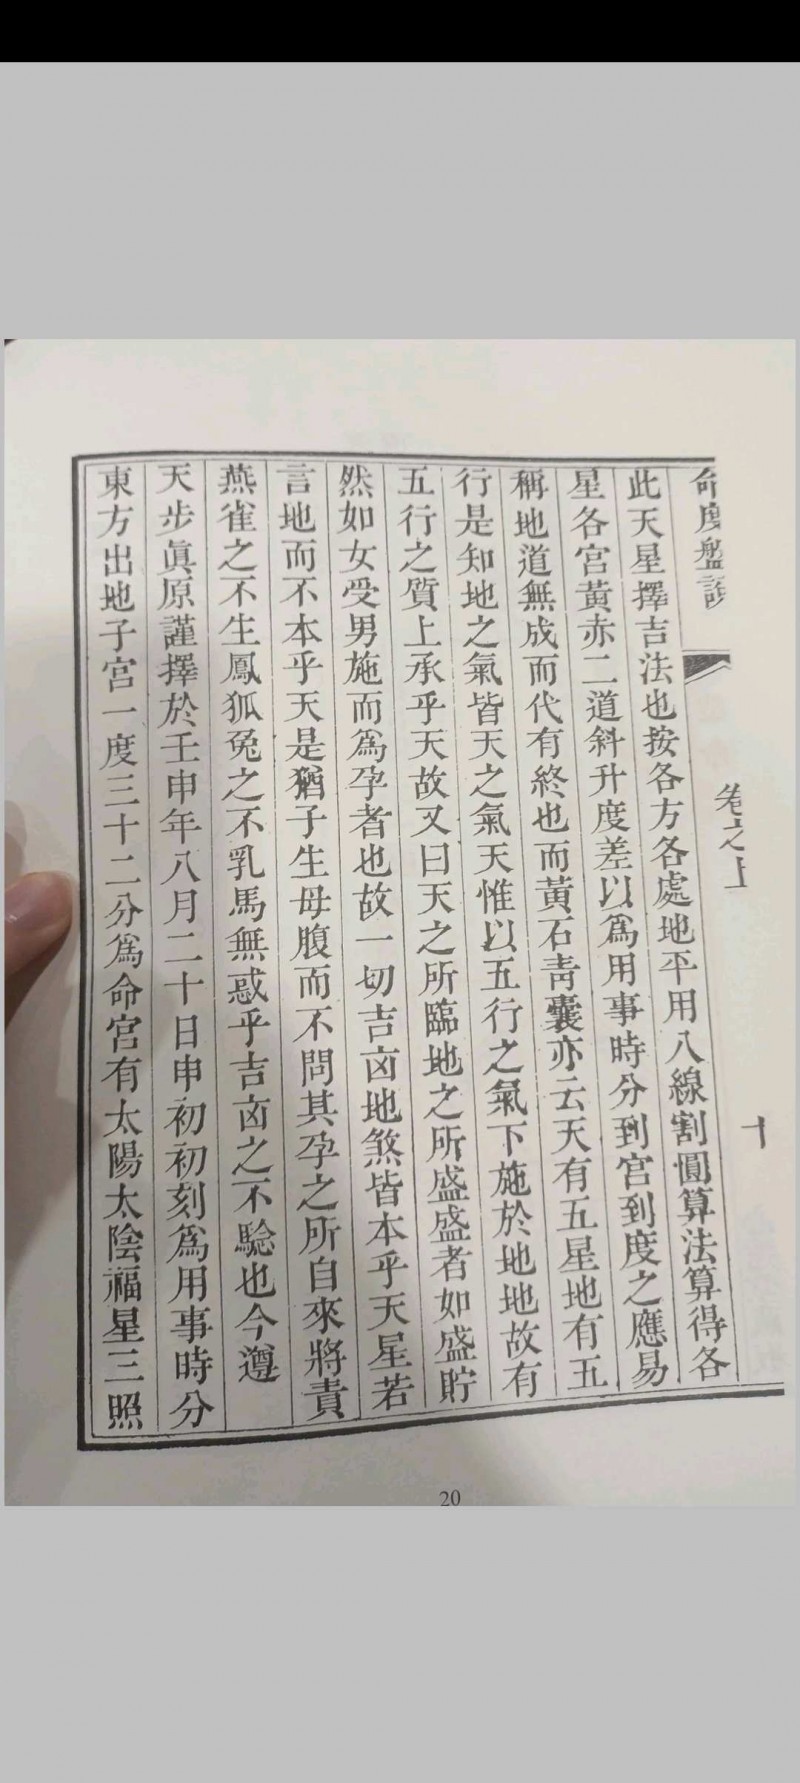 命度盤說
卷之上
十
此天星擇吉法也按各方各處地平用八線割圓算法算得各
星各宮黃赤二道斜升度差以爲用事時分到宮到度之應易
稱地道無成而代有終也而黃石靑囊亦云天有五星地有五
行是知地之氣皆天之氣天惟以五行之氣下施於地地故有
五行之質上承乎天故又曰天之所臨地之所盛盛者如盛貯
然如女受男施而爲孕者也故一切吉凶地煞皆本乎天星若
言地而不本乎天是猶子生母腹而不問其孕之所自來將責
燕雀之不生鳳狐兔之不乳馬無惑乎吉凶之不驗也今遵
天步眞原謹擇於壬申年八月二十日申初初刻爲用事時分
東方出地子宮一度三十二分爲命宮有太陽太陰福星三照
20